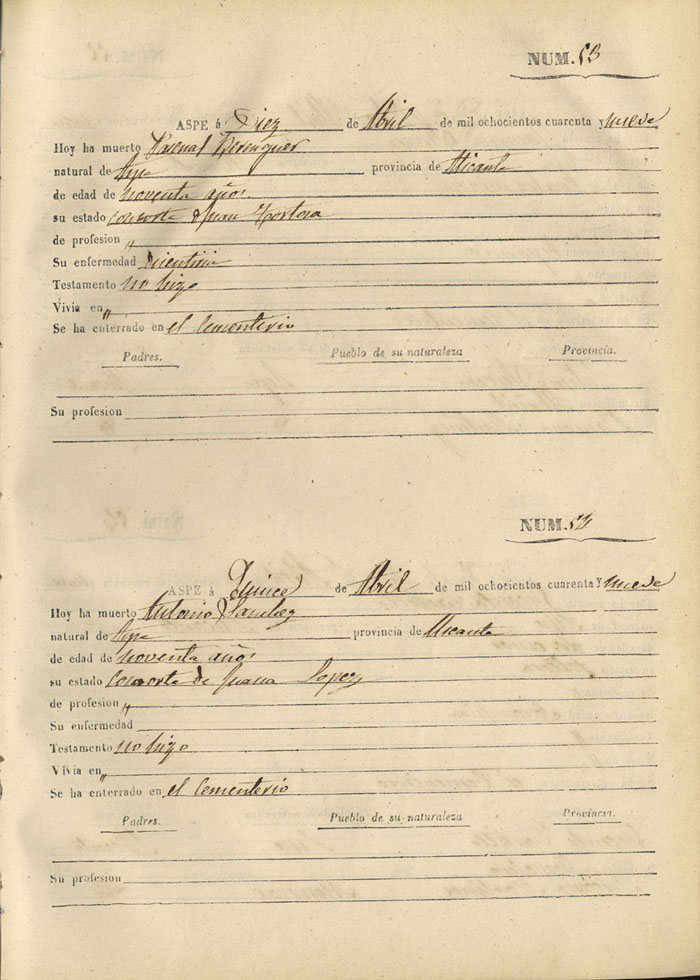 NUM. 53
ASPE á Diez de Abril de mil ochocientos cuarenta y nueve
Hoy ha muerto Berenguer
natural de Aspe provincia de Alicante
de edad de noventa años
su estado consorte Juan
de profesion "
Su enfermedad
Testamento no hizo
Vivia en "
Se ha enterrado en el Cementerio
Padres. Pueblo de su naturaleza Provincia.
Su profesion
NUM.
ASPE á Quince de Abril de mil ochocientos cuarenta y nueve
Hoy ha muerto Antonio Sanchez
natural de Aspe provincia de Alicante
de edad de noventa años
su estado consorte de Juana Lopez
de profesion "
Su enfermedad
Testamento no hizo
Vivia en "
Se ha enterrado en el Cementerio
Padres. Pueblo de su naturaleza Provincia.
Su profesion